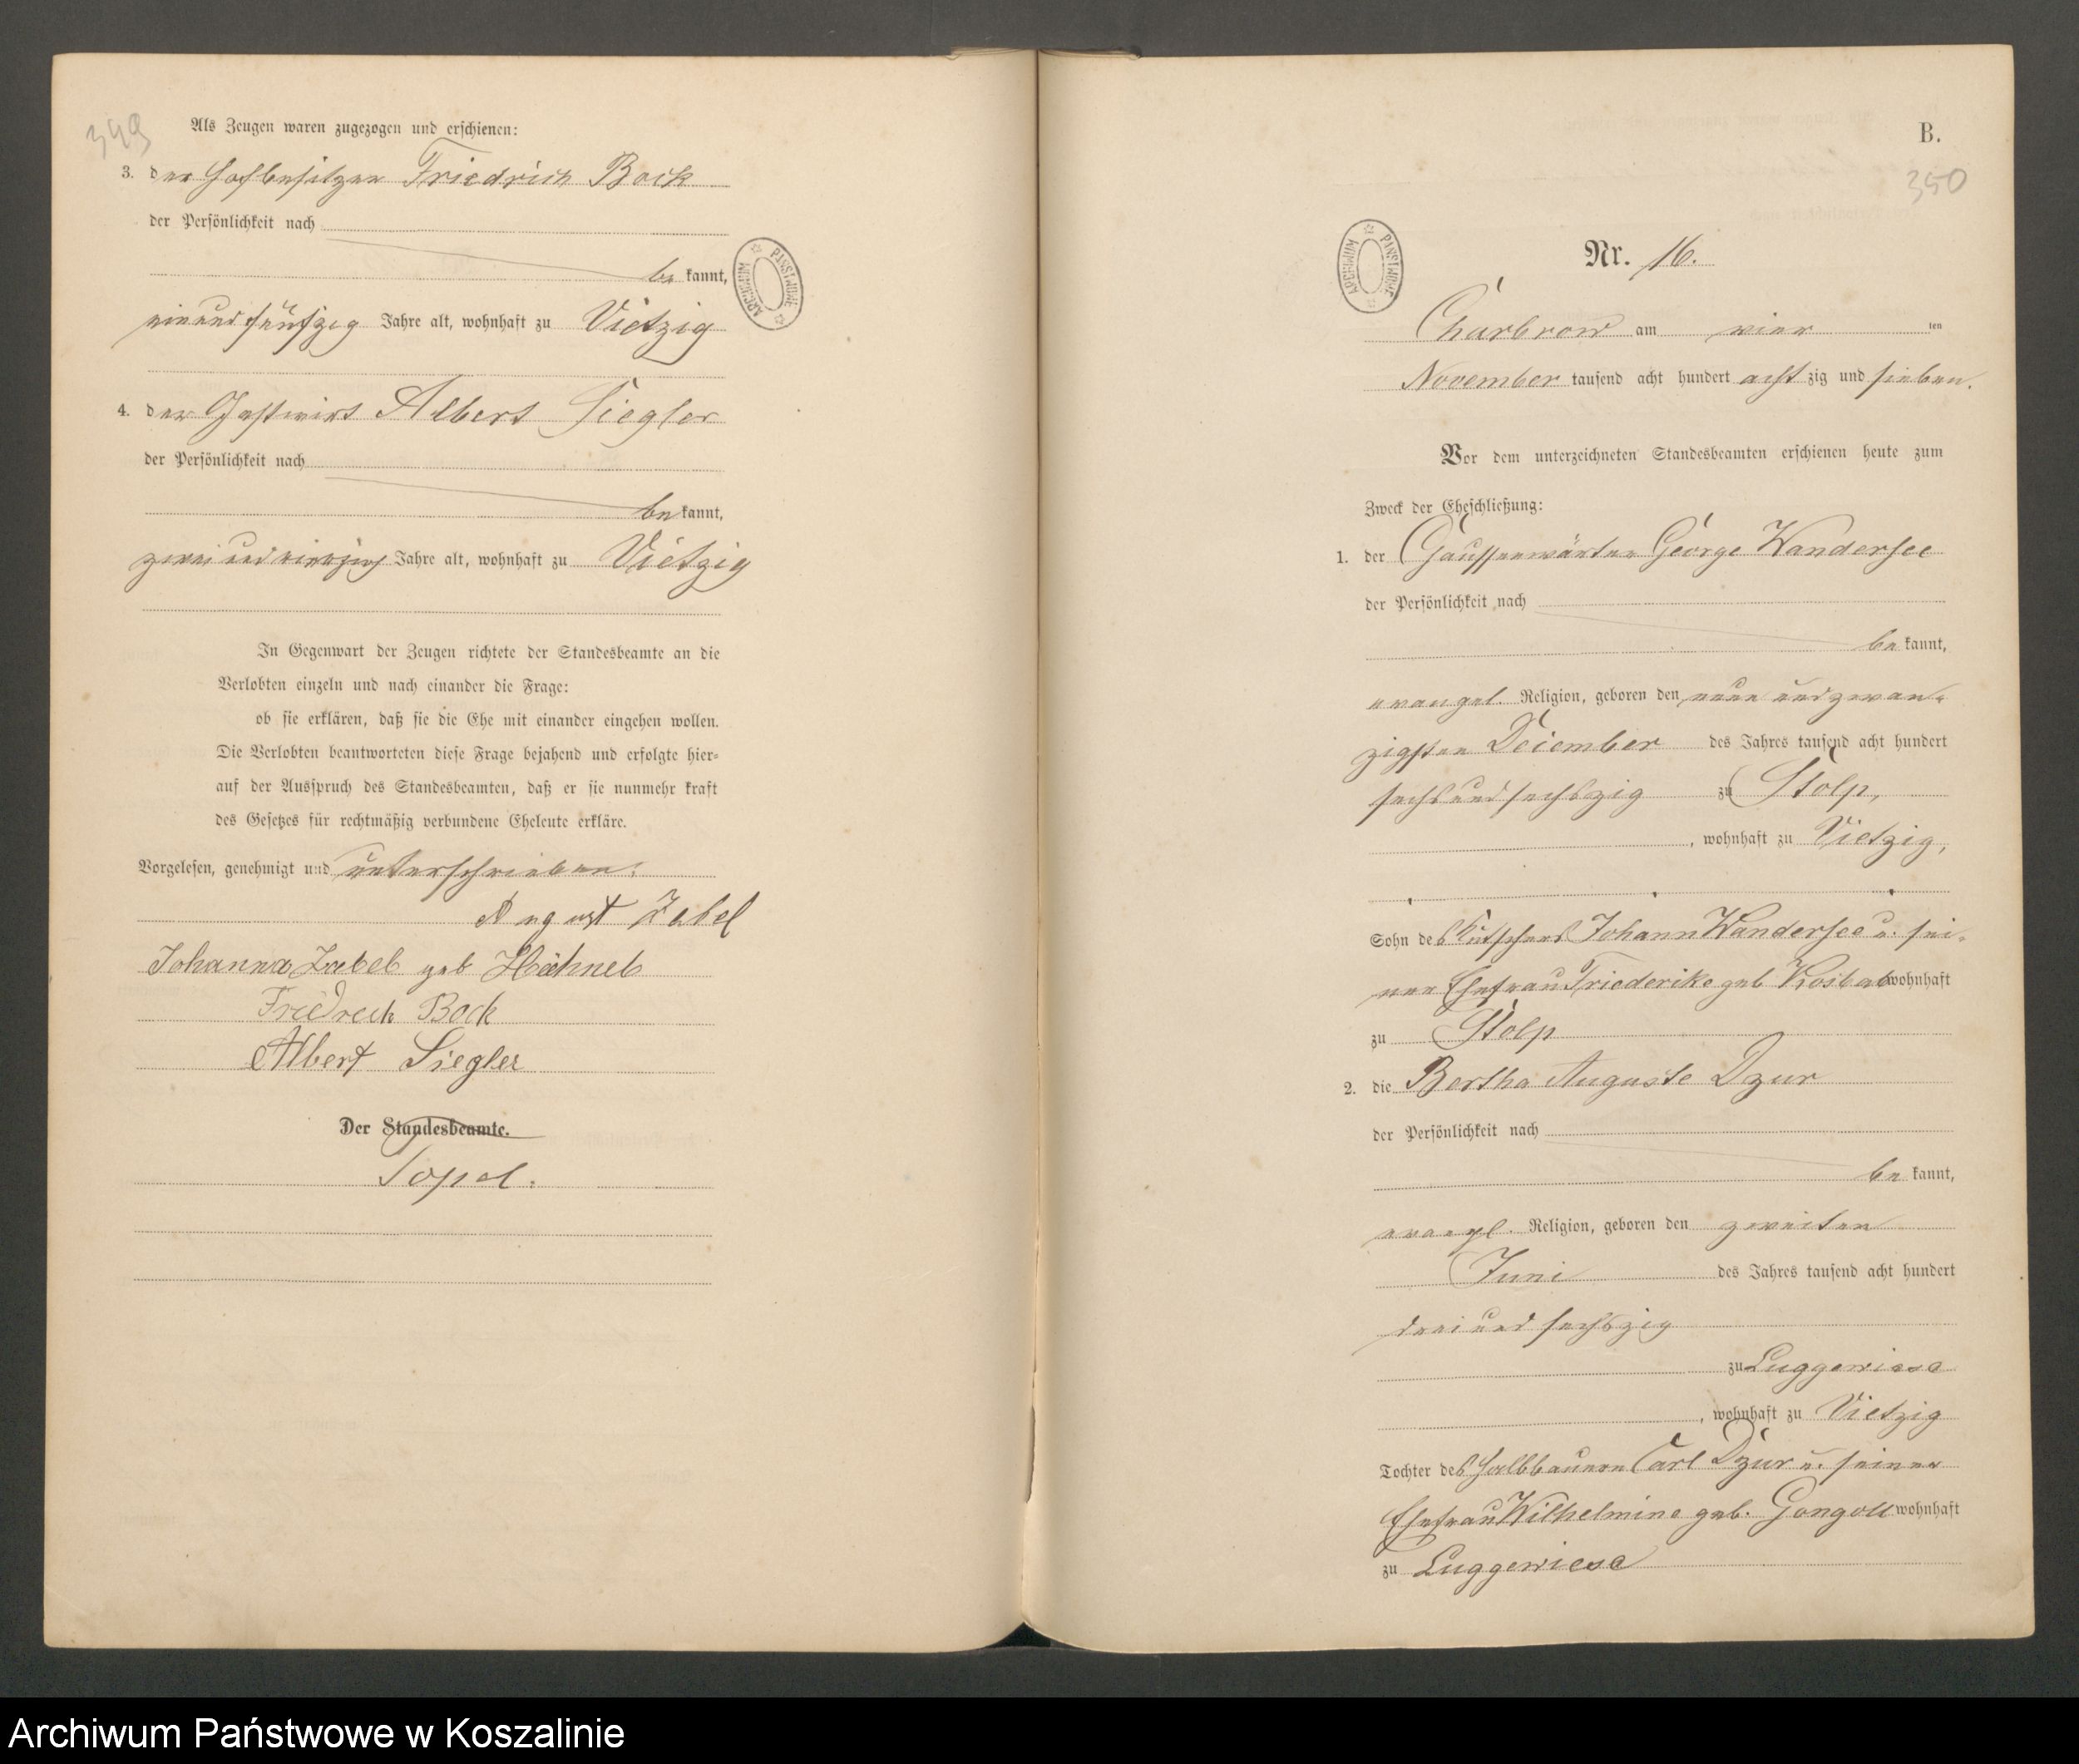 349
Als Zeugen waren zugezogen und erschienen:
3. der Hofbesitzer Friedrich Bock
der Persönlichkeit nach
be kannt,
einundfünfzig Jahre alt, wohnhaft zu Vietzig
4. der Gastwirt Albert Siegler
der Persönlichkeit nach
be kannt,
zweiundvierzig Jahre alt, wohnhaft zu Vietzig
In Gegenwart der Zeugen richtete der Standesbeamte an die
Verlobten einzeln und nach einander die Frage:
ob sie erklären, daß sie die Ehe mit einander eingehen wollen.
Die Verlobten beantworteten diese Frage bejahend und erfolgte hier-
auf der Ausspruch des Standesbeamten, daß er sie nunmehr kraft
des Gesetzes für rechtmäßig verbundene Eheleute erkläre.
Vorgelesen, genehmigt und unterschrieben.
August Zabel
Johanna Zabel geb Hähnel
Friedrech Bock
Albert Siegler
Der Standesbeamte.
Topel.
ARCHIWUM PAŃSTWOWE
B.
350
ARCHIWUM PAŃSTWOWE
Nr. 16.
Charbrow am vier ten
November tausend acht hundert acht zig und sieben.
Vor dem unterzeichneten Standesbeamten erschienen heute zum
Zweck der Eheschließung:
1. der Chausseewärter George Wandersee
der Persönlichkeit nach
be kannt,
evangel. Religion, geboren den neun undzwan-
zigsten Dezember des Jahres tausend acht hundert
sechsundsechszig zu Stolp,
, wohnhaft zu Vietzig,
Sohn des Kutschers Johann Wandersee u. sei-
ner Ehefrau Friederike geb Kosbab wohnhaft
zu Stolp
2. die Bertha Auguste Dzur
der Persönlichkeit nach
be kannt,
evangl. Religion, geboren den zweiten
Juni des Jahres tausend acht hundert
dreiundsechszig
zu Luggewiese
, wohnhaft zu Vietzig
Tochter des Halbbauern Carl Dzur u. seiner
Ehefrau Wilhelmine geb. Gongoll wohnhaft
zu Luggewiese
Archiwum Państwowe w Koszalinie